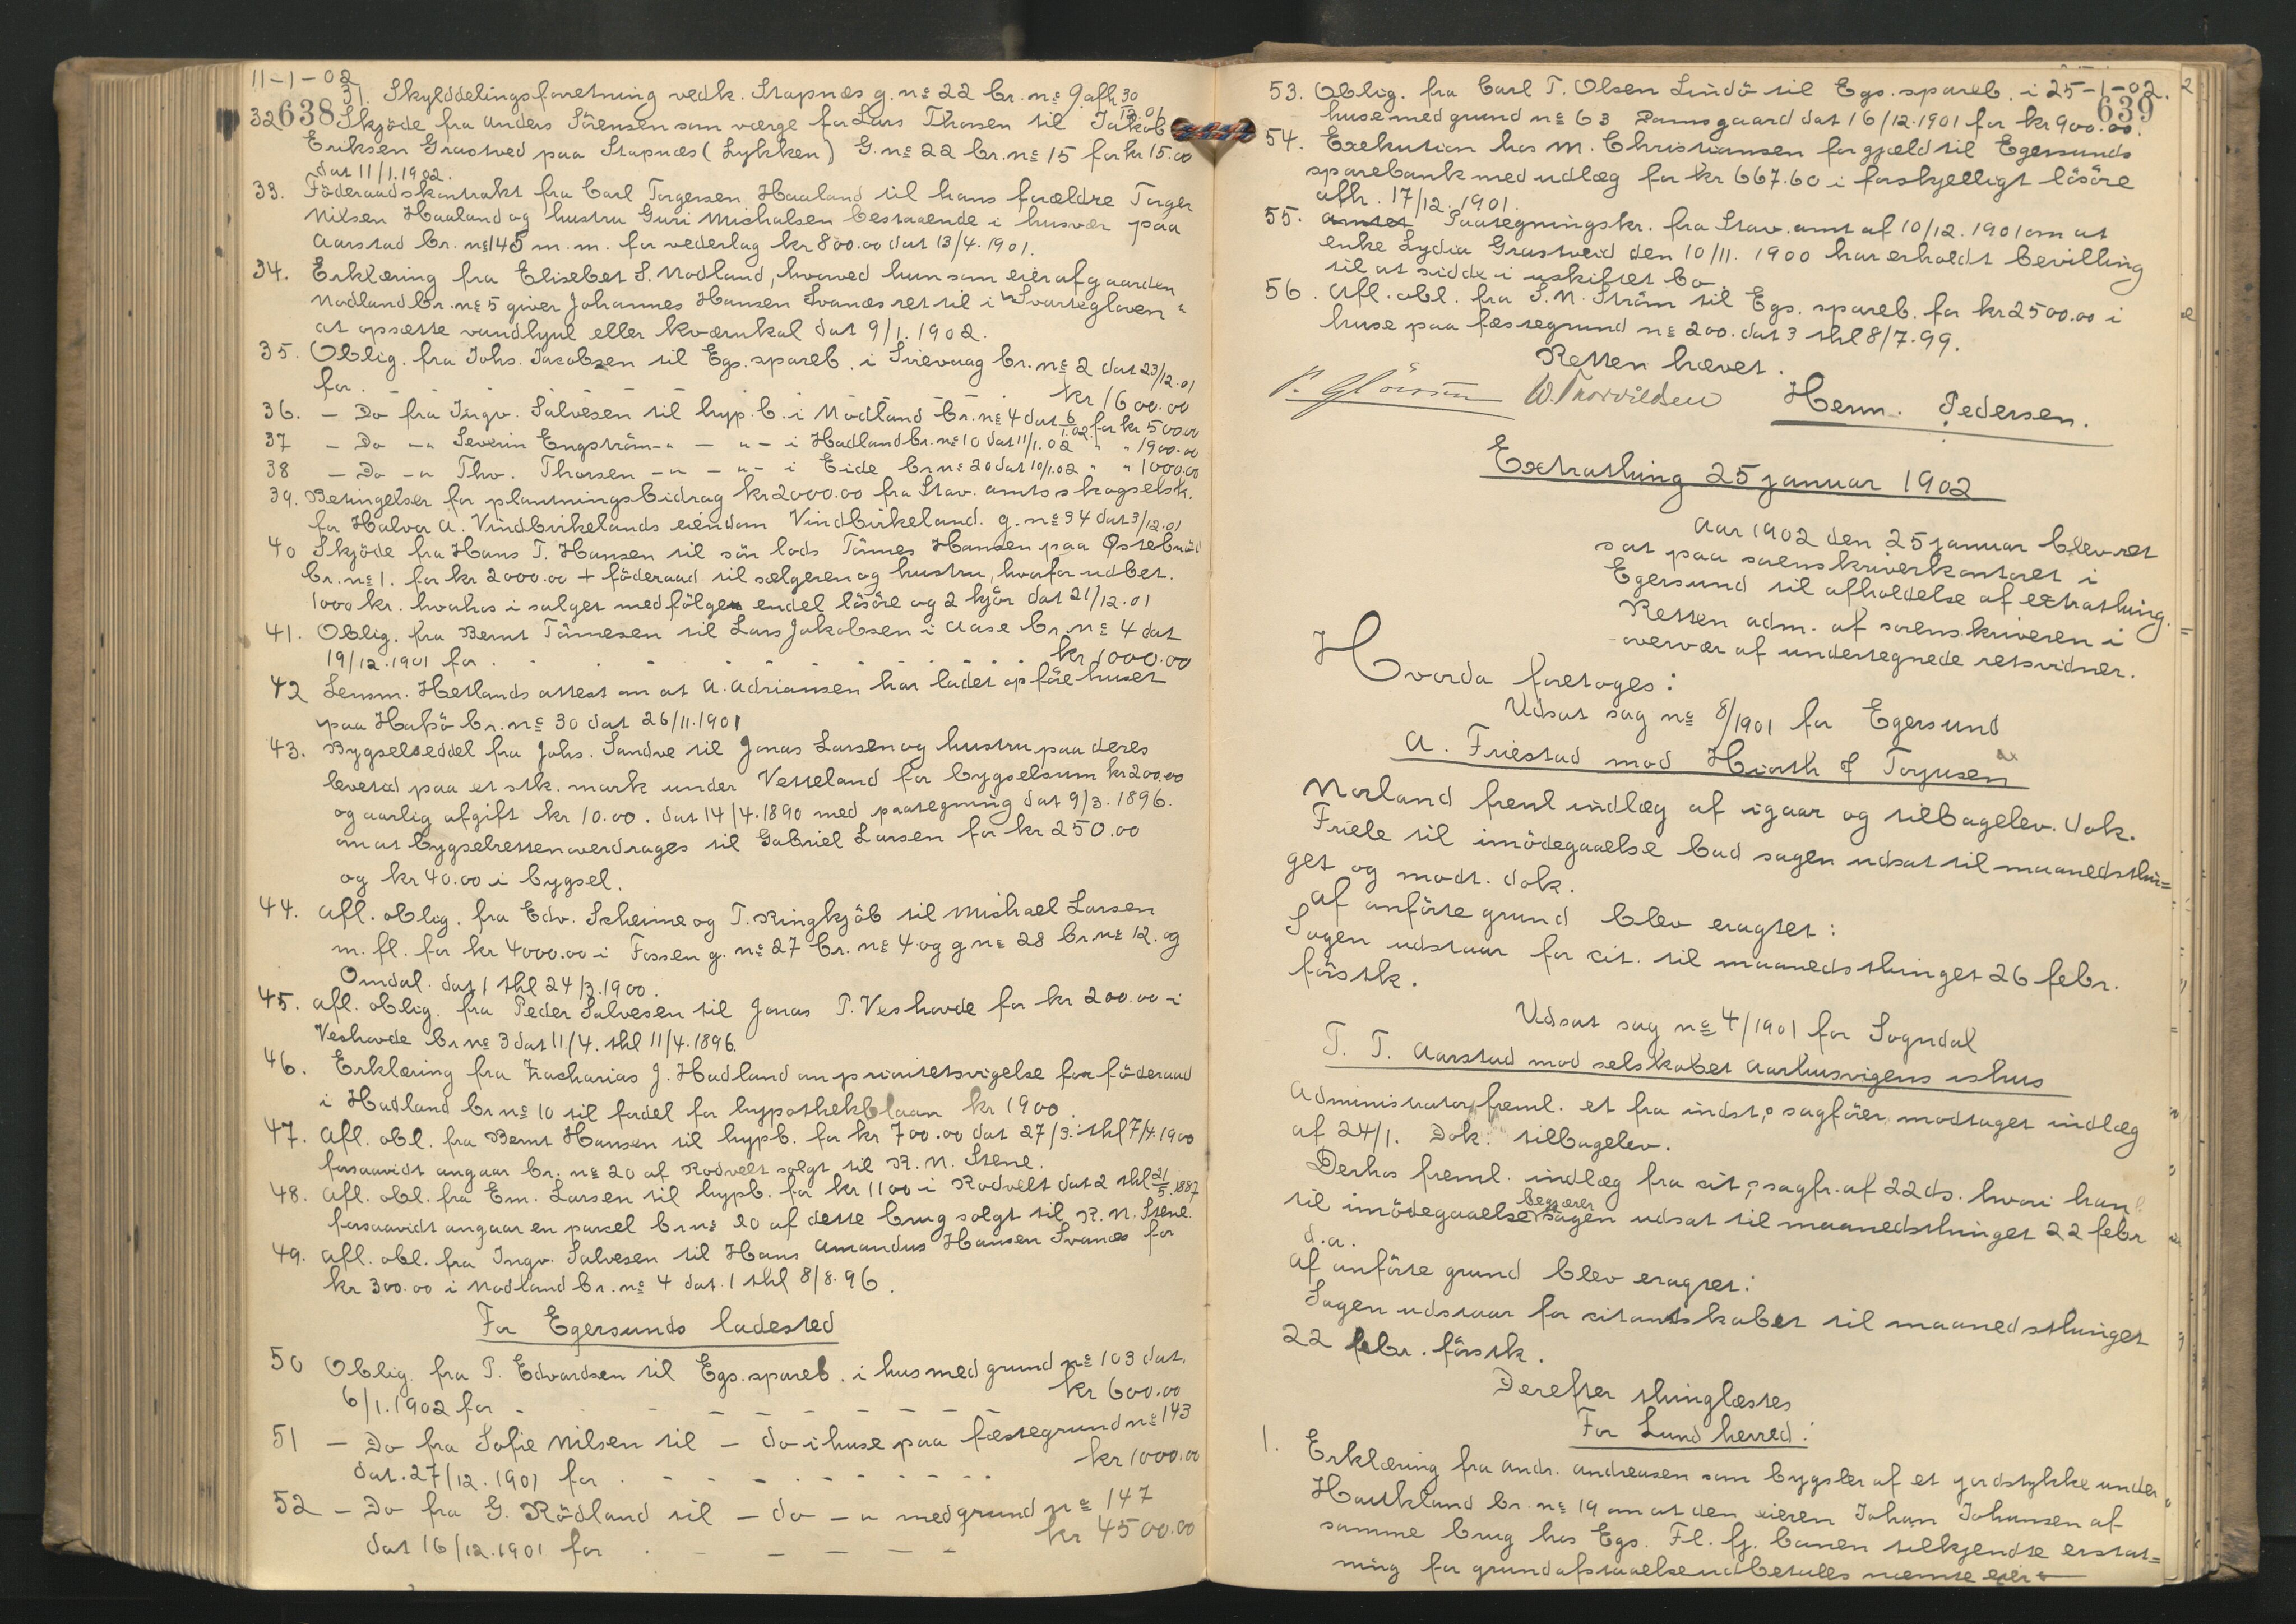 11-1-02
638
31. Skylddelingsforretning vedk. Stapnæs g. nº 22 br. nº 9 afh 30/12.01
32 Skjöde fra Anders Sörensen som værge for Lars Thorsen til Jakob
Eriksen Grastved paa Stapnæs (Lykken) G. nº 22 br. nº 15 for kr 15.00
dat 11/1.1902.
33. Föderaadskontrakt fra Carl Torgersen Haaland til hans forældre Torger
Nilsen Haaland og hustru Guri Michalsen bestaaende i husvær paa
Aarstad br. nº 145 m. m. for vederlag kr 800.00 dat 13/4. 1901.
34. Erklæring fra Elisebet S. Nodland, hvorved hun som eier af gaarden
Nodland br. nº 5 giver Johannes Hansen Svanes ret til i "Svarteglaven"
at opsætte vandhjul eller kværnkal dat 9/1. 1902.
35. Oblig. fra Johs. Jacobsen til Egs. spareb. i Sirevaag br. nº 2 dat 23/12.01
for . - - - - - - - kr 1600.00
36. - Do fra Ingv. Salvesen til hyp. b. i Nodland br. nº 4 dat 6/1.02 for kr 500.00
37 - Do -" Severin Engström -" - " - i Hadland br. nº 10 dat 11/1. 02 " " 1900.00
38 - Do -" Thv. Thorsen -" - "- i Eide br. nº 20 dat 10/1.02 " " 1000.00
39. Betingelser for plantningsbidrag kr 2000.00 fra Stav. amts skogselsk.
for Halvor A. Vindbirkelands eiendom Vindbirkeland. g. nº 34 dat 3/12.01
40 Skjöde fra Hans T. Hansen til sön lods Tönnes Hansen paa Östebröd
br. nº 1. for kr 2000.00 + föderaad til sælgeren og hustru, hvorfor udbet.
1000 kr. hvorhos i salget medfölger endel lösöre og 2 kjör dat 21/12.01
41. Oblig. fra Bernt Tönnesen til Lars Jakobsen i Aase br. nº 4 dat
19/12.1901 for . . . . . . . . . . kr 1000.00
42 Lensm. Hetlands attest om at A. Adriansen har ladet opföre huset
paa Hafsö br. nº 30 dat 26/11.1901
43. Bygselseddel fra Johs. Sandve til Jonas Larsen og hustru paa deres
levetid paa et stk. mark under Vetteland for bygselsum kr 200.00
og aarlig afgift kr 10.00. dat 14/4.1890 med paategning dat 9/3. 1896.
om at bygselretten overdrages til Gabriel Larsen for kr 250.00
og kr 40.00 i bygsel.
44. Afl. oblig. fra Edv. Skheime og T. Ringkjöb til Michael Larsen
m. fl. for kr 4000.00 i Fossen g. nº 27 br. nº 4 og g nº 28 br nº 12. og
Omdal. dat 1 thl 24/3.1900.
45. Afl. oblig. fra Peder Salvesen til Jonas P. Veshovde for kr 200.00 i
Veshovde br nº 3 dat 11/4. thl 11/4.1896.
46. Erklæring fra Zacharias J. Hadland om prioritetsvigelse for föderaad
i Hadland br nº 10 til fordel for hypothekblaan kr 1900.
47. Afl. obl. fra Bernt Hansen til hypb. for kr 700.00 dat 27/3. thl 7/4.1900
forsaavidt angaar br. nº 20 af Rodvelt solgt til R. N. Stene.
48. Afl. obl. fra Em. Larsen til hypb. for kr 1100 i Rodvelt dat 2 thl 21/5.1887
forsaavidt angaar en parcel br nº 20 af dette brug solgt til R. N. Stene.
49. Afl. obl. fra Ingv. Salvesen til Hans Amandus Hansen Svanes for
kr 300.00 i Nodland br. nº 4 dat. 1 thl 8/8.96.
For Egersunds ladested
50 Oblig. fra P. Edvardsen til Egs. spareb. i hus med grund nº 103 dat.
6/1.1902 for - - - - - - - kr 600.00
51 - Do fra Sofie Nilsen til - do i huse paa fæstegrund nº 143
dat. 27/12.1901 for . - - - - - - - kr 1000.00
52 - Do fra G. Rödland til - do - " med grund nº 147
dat 16/12.1901 for . - - - - - kr 4500.00
25-1-02.
639
53. Oblig. fra Carl T. Olsen Lindö til Egs. spareb. i
huse med grund nº 63 Damsgaard dat 16/12.1901 for kr 900.00.
54. Exekution hos M. Christiansen for gjæld til Egersunds
sparebank med udlæg for kr 667.60 i forskjelligt lösöre
afh. 17/12.1901.
55. Paategningskr. fra Stav. amt af 10/12.1901 om at
enke Lydia Grastveid den 10/11. 1900 har erholdt bevilling
til at sidde i uskiftet bo.
56. Afl. obl. fra S. N. Ström til Egs. spareb. for kr 2500.00 i
huse paa fæstegrund nº 200. dat 3 thl 8/7.99.
Retten hævet.
W. Thorvildsen Herm. Pedersen.
Extrathing 25 januar 1902
Aar 1902 den 25 januar blev ret
sat paa sorenskriverkontoret i
Egersund til afholdelse af extrathing.
Retten adm. af sorenskriveren i
overvær af undertegnede retsvidner.
Hvorda foretoges:
Udsat sag nº 8/1901 for Egersund
A. Friestad mod Hiorth & Torjusen
Norland freml indlæg af igaar og tilbagelev. dok.
Friele til imödegaaelse bad sagen udsat til maanedsthin=
get og modt. dok.
Af anförte grund blev eragtet:
Sagen udstaar for cit. til maanedsthinget 26 febr.
förstk.
Udsat sag nº 4/1901 for Sogndal
T. T. Aarstad mod selskabet Aarhusvigens ishus
Administrator freml. et fra indst. sagförer modtaget indlæg
af 24/1. Dok. tilbagelev.
Derhos freml. indlæg fra cit. sagfr. af 22 ds. hvori han
til imödegaaelse begjærer sagen udsat til maanedsthinget 22 febr
d.a.
Af anförte grund blev eragtet:
Sagen udstaar for citantskabet til maanedsthinget
22 febr. förstk.
Derefter thinglæstes
For Lund herred:
1. Erklæring fra Andr. Andreasen som bygsler af et jordstykke under
Haukland br. nº 19 om at den eieren Johan Johansen af
samme brug hos Egs. Fl. fj. banen tilkjendte erstat=
ning for grundafstaaelse udbetales nævnte eier